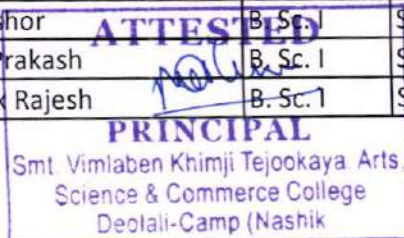 shor B. Sc. I S
ATTESTED
Prakash B. Sc. I S
k Rajesh B. Sc. 1 S
PRINCIPAL
Smt. Vimlaben Khimji Tejookaya Arts,
Science & Commerce College
Deolali-Camp (Nashik